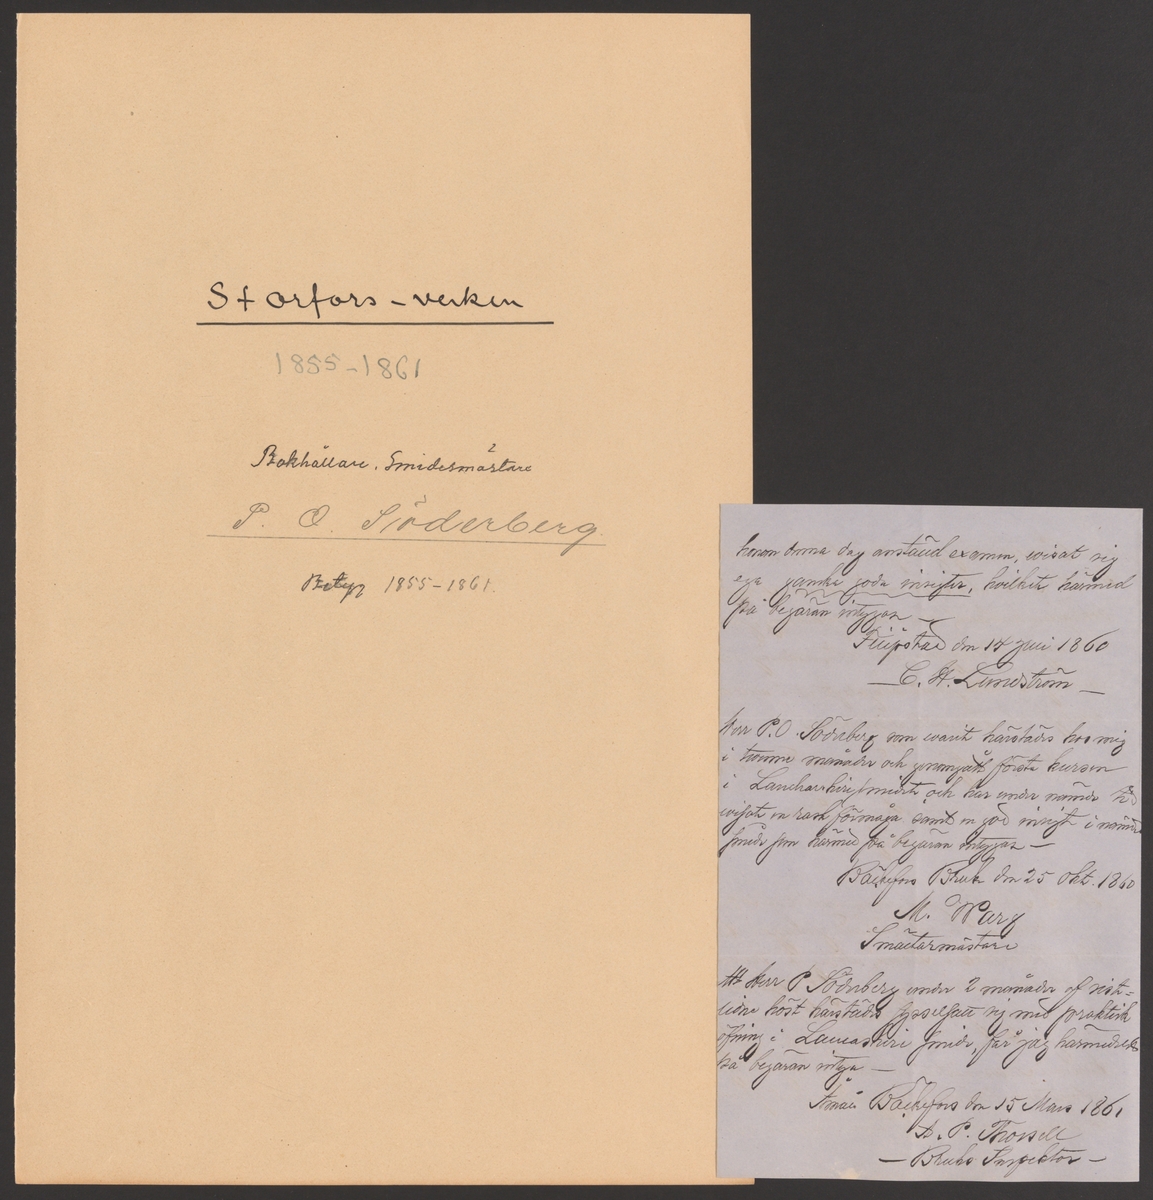 Storfors-verken
1855-1861
Bokhållare. Smidesmästare
2
P. O. Söderberg.
Betyg 1855-1861.
honom denna dag anstäld examen, wisat sig
ega ganska goda insigter, hvilket härmed
på begäran intygas
Filipstad den 14 Juli 1860
C. H. Lundström
Herr P. O. Söderberg som warit härstädes hos mig
i tvenne månader och genomgått första kursen
i Lancashiresmidet, och har under nämnde tid
wisat en rask förmåga samt en god insigt i nämde
smide som härmed på begäran intygas —
Bäckefors Bruk den 25 Okt. 1860
M. Warg
Smältarmästare
Att Herr P Söderberg under 2 månader af sist-
lidne höst härstädes sysselsatt sig med praktisk
öfning i Lancashire smide, får jag härmedelst
på begäran intyga —
Åmål Bäckefors den 15 Mars 1861
A. P. Thorsell
— Bruks Inspektor —